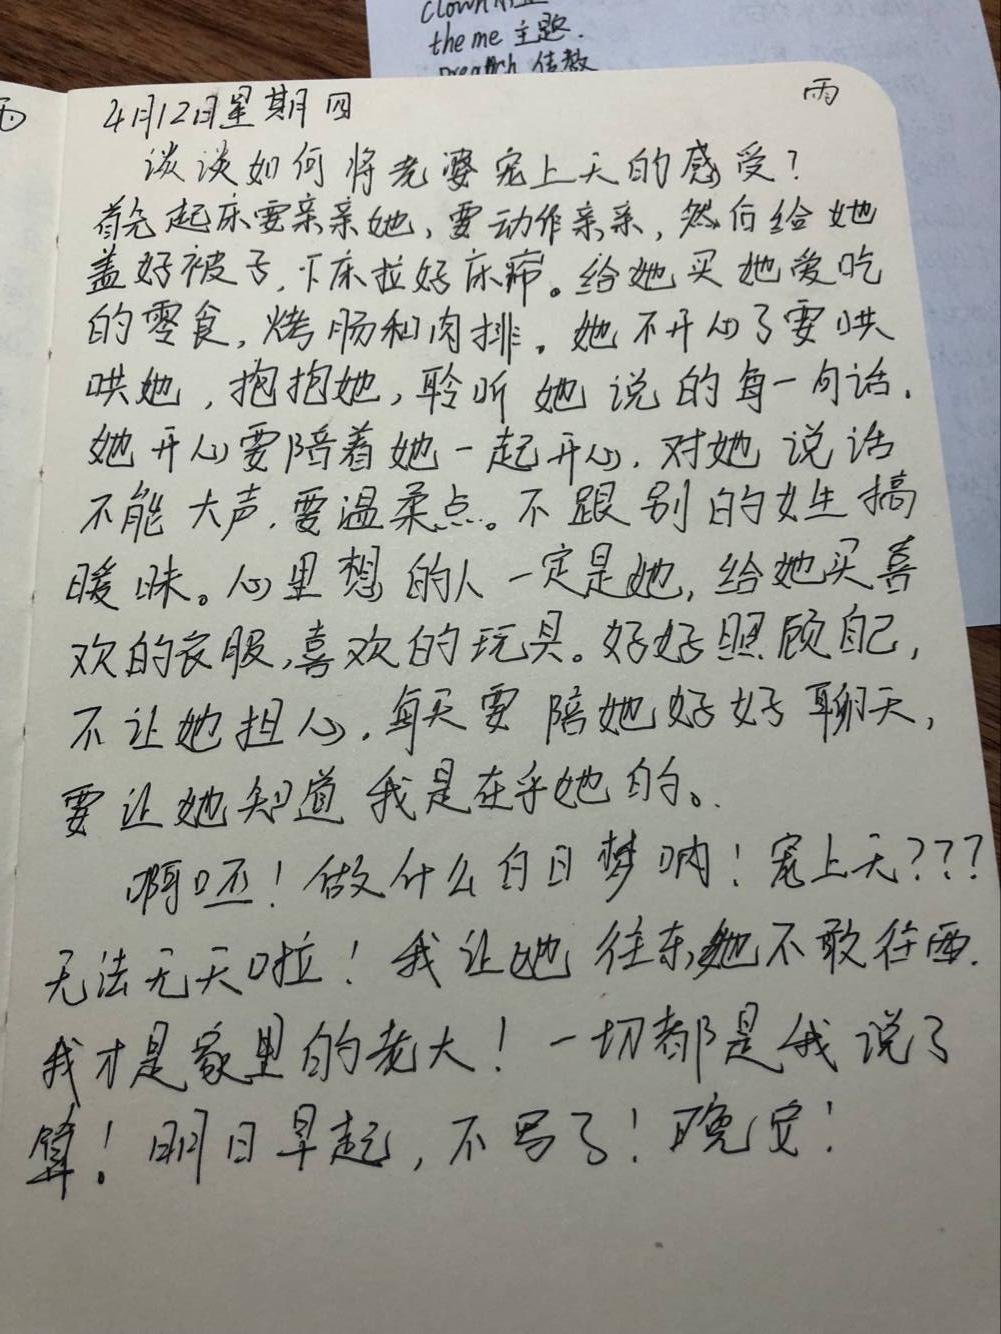 theme 主题.
preach 传教
雨
4月12日星期四
谈谈如何将老婆宠上天的感受？
首先起床要亲亲她，要动作亲亲，然后给她
盖好被子，下床拉好床帘。给她买她爱吃
的零食，烤肠和肉排。她不开心了要哄
哄她，抱抱她，聆听她说的每一句话.
她开心要陪着她一起开心. 对她说话
不能大声. 要温柔点。不跟别的女生搞
暧昧。心里想的人一定是她，给她买喜
欢的衣服，喜欢的玩具。好好照顾自己，
不让她担心. 每天要陪她好好聊天，
要让她知道我是在乎她的。
啊呸！做什么白日梦呐！宠上天？？？
无法无天啦！我让她往东，她不敢往西.
我才是家里的老大！一切都是我说了
算！明日早起，不写了！晚安！